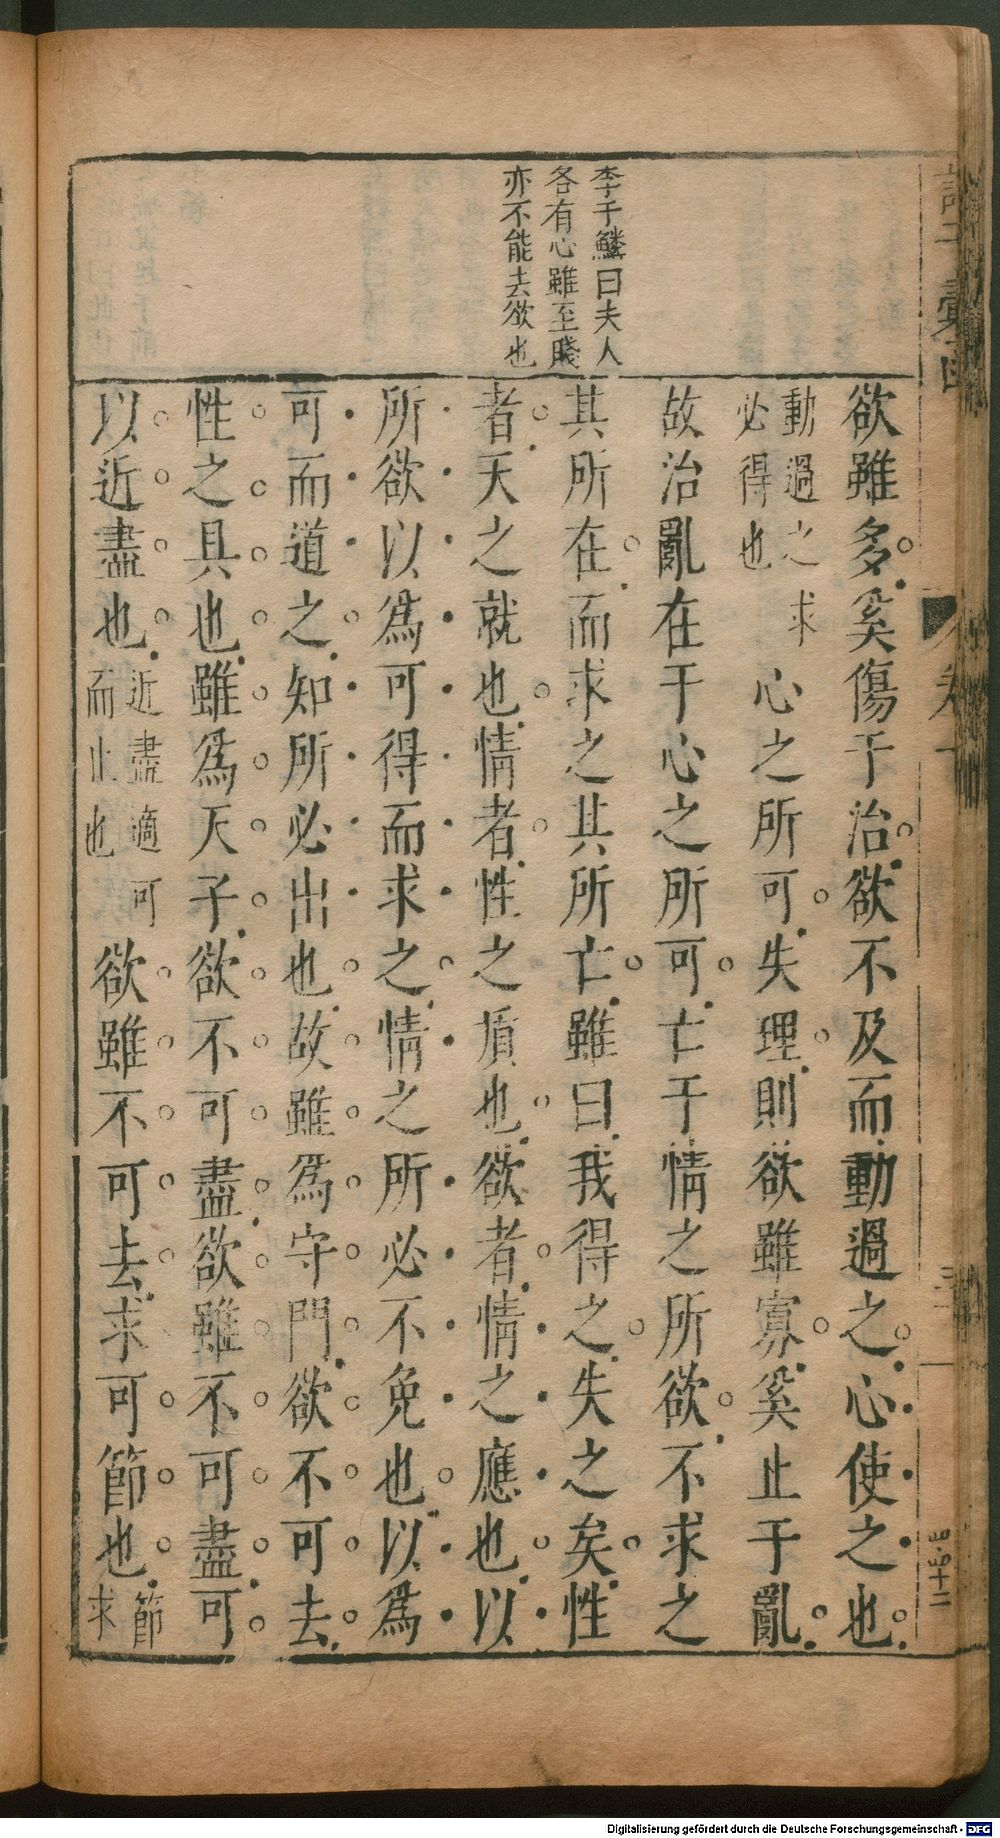 李于鱗曰夫人
各有心雖至賤
亦不能去欲也
欲雖多奚傷于治欲不及而動過之心使之也
動過之求
必得也
心之所可失理則欲雖寡奚止于亂
故治亂在于心之所可亡于情之所欲不求之
其所在而求之其所亡雖曰我得之失之矣性
者天之就也情者性之質也欲者情之應也以
所欲以爲可得而求之情之所必不免也以爲
可而道之知所必出也故雖爲守門欲不可去
性之具也雖爲天子欲不可盡欲雖不可盡可
以近盡也
近盡適可
而止也
欲雖不可去求可節也
節
求
Digitalisierung gefördert durch die Deutsche Forschungsgemeinschaft - DFG